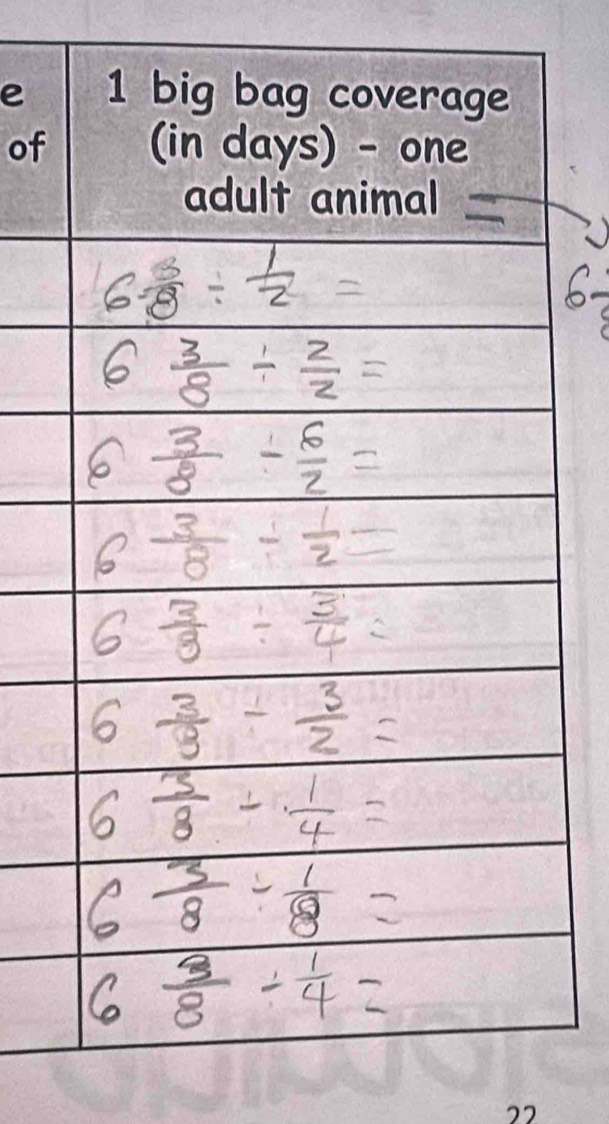 e 1 big bag coverage
of (in days) - one
adult animal =
6 3/8 ÷ 1/2 =
6 3/8 ÷ 2/2 =
6 3/8 ÷ 6/2 =
6 3/8 ÷ 1/2 =
6 3/8 ÷ 3/4 =
6 3/8 ÷ 3/2 =
6 3/8 ÷ 1/4 =
6 3/8 ÷ 1/8 =
6 3/8 ÷ 1/4 =
22